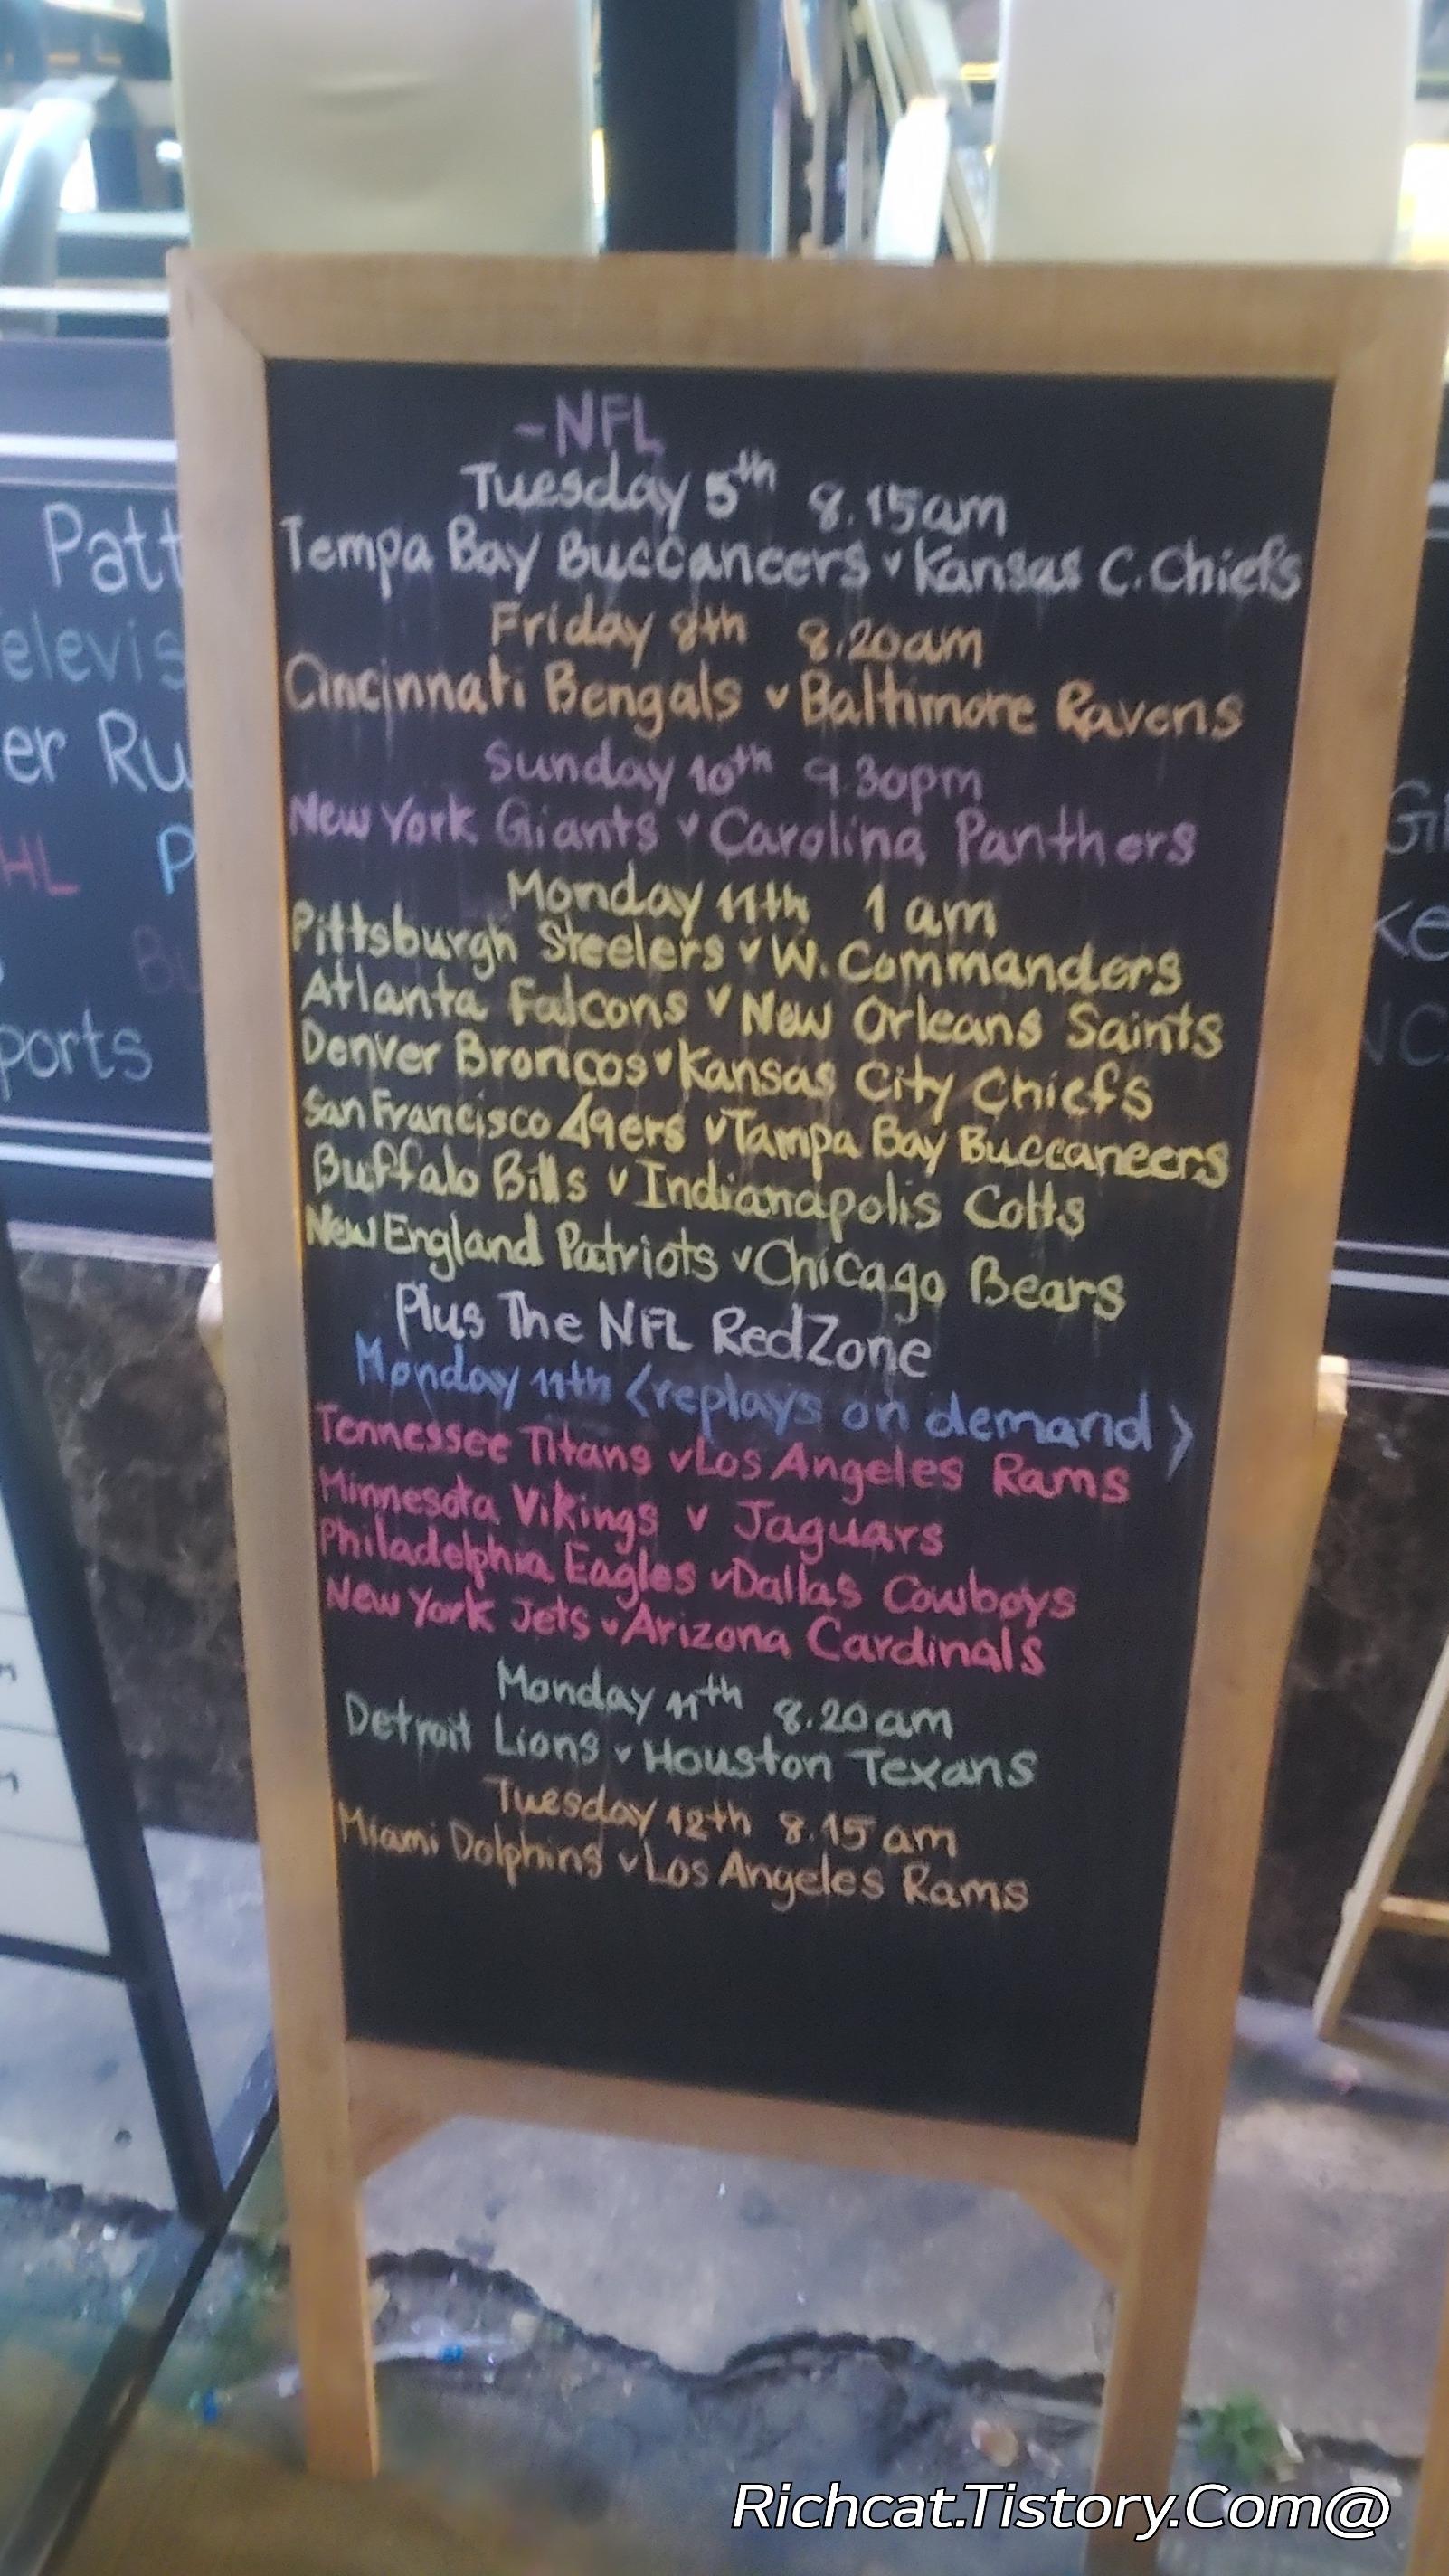 -NFL
Tuesday 5th 8.15am
Tempa Bay Buccaneers v Kansas C. Chiefs
Friday 8th 8.20am
Cincinnati Bengals v Baltimore Ravens
Sunday 10th 9.30pm
New York Giants v Carolina Panthers
Monday 11th 1 am
Pittsburgh Steelers v W. Commanders
Atlanta Falcons v New Orleans Saints
Denver Broncos v Kansas City Chiefs
San Francisco 49ers v Tampa Bay Buccaneers
Buffalo Bills v Indianapolis Cotts
New England Patriots v Chicago Bears
Plus The NFL RedZone
Monday 11th (replays on demand)
Tennessee Titans v Los Angeles Rams
Minnesota Vikings v Jaguars
Philadelphia Eagles v Dallas Cowboys
New York Jets v Arizona Cardinals
Monday 11th 8.20am
Detroit Lions v Houston Texans
Tuesday 12th 8.15am
Miami Dolphins v Los Angeles Rams
Patt
elevis
er Ru
HL P
Bu
ports
Richcat.Tistory.Com@